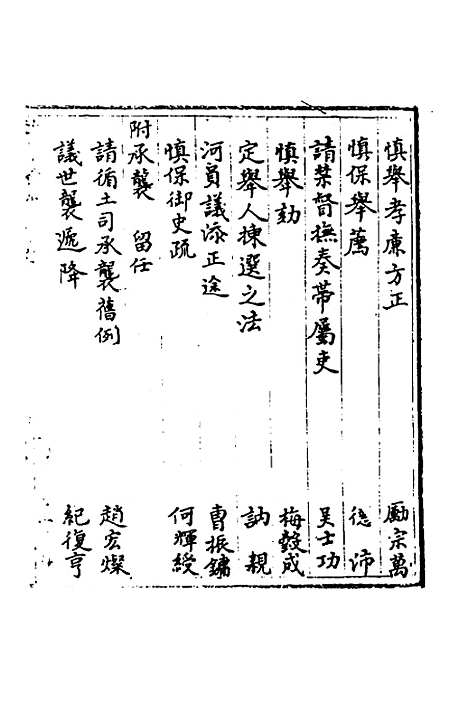 慎舉孝廉方正 勵宗萬
慎保舉薦 德沛
請禁督撫奏帶屬吏 吳士功
慎舉劾 梅瑴成
定舉人揀選之法 訥親
河員議添正途 曹振鏞
慎保御史疏 何輝綬
附承襲 留任
請循土司承襲舊例 趙宏燦
議世襲遞降 紀復亨